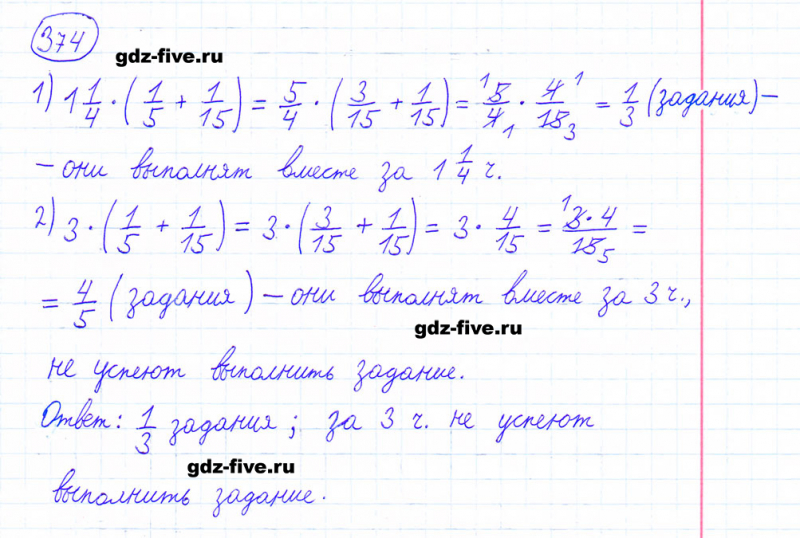 374
gdz-five.ru
1) 1 1/4 · (1/5 + 1/15) = 5/4 · (3/15 + 1/15) = 5/4 · 4/15 = 1/3 (задания) –
– они выполнят вместе за 1 1/4 ч.
2) 3 · (1/5 + 1/15) = 3 · (3/15 + 1/15) = 3 · 4/15 = 3·4/15 =
= 4/5 (задания) – они выполнят вместе за 3 ч.,
gdz-five.ru
не успеют выполнить задание.
Ответ: 1/3 задания; за 3 ч. не успеют
gdz-five.ru
выполнить задание.